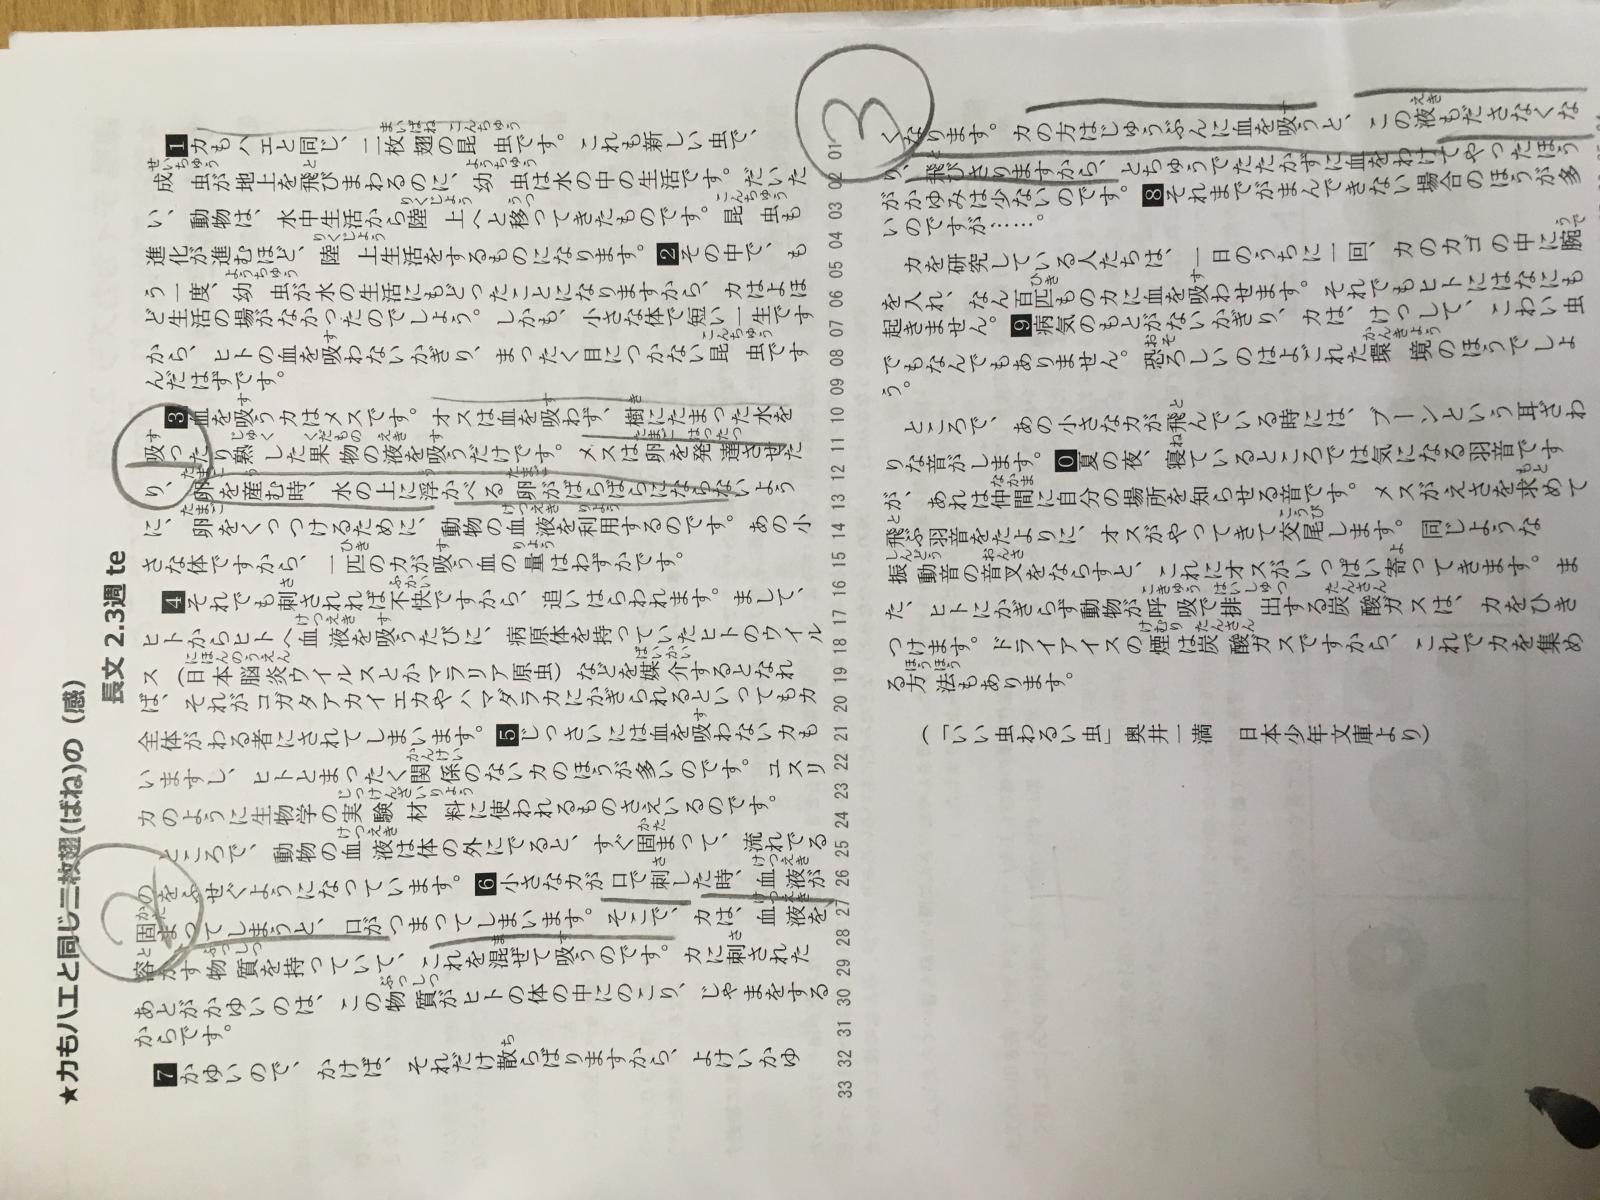 ★カもハエと同じ二枚翅(ばね)の (感)
長文 2.3週 te
1カもハエと同じ、二枚翅の昆虫です。これも新しい虫で、
成虫が地上を飛びまわるのに、幼虫は水の中の生活です。だいた
い、動物は、水中生活から陸上へと移ってきたものです。昆虫も
進化が進むほど、陸上生活をするものになります。2その中で、も
う一度、幼虫が水の生活にもどったことになりますから、カはよほ
ど生活の場がなかったのでしょう。しかも、小さな体で短い一生です
から、ヒトの血を吸わないかぎり、まったく目につかない昆虫です
んだはずです。
3血を吸うカはメスです。オスは血を吸わず、樹にたまった水を
吸ったり熟した果物の液を吸うだけです。メスは卵を発達させた
り、卵を産む時、水の上に浮かべる卵がばらばらにならないよう
に、卵をくっつけるために、動物の血液を利用するのです。あの小
さな体ですから、一匹のカが吸う血の量はわずかです。
4それでも刺されれば不快ですから、追いはらわれます。まして、
ヒトからヒトへ血液を吸うたびに、病原体を持っていたヒトのウイル
ス(日本脳炎ウイルスとかマラリア原虫)などを媒介するとなれ
ば、それがコガタアカイエカやハマダラカにかぎられるといってもカ
全体がわる者にされてしまいます。5じっさいには血を吸わないカも
いますし、ヒトとまったく関係のないカのほうが多いのです。ユスリ
カのように生物学の実験材料に使われるものさえいるのです。
ところで、動物の血液は体の外にでると、すぐ固まって、流れでる
のをふせぐようになっています。6小さなカが口で刺した時、血液が
固まってしまうと、口がつまってしまいます。そこで、カは、血液を
溶かす物質を持っていて、これを混ぜて吸うのです。カに刺された
あとがかゆいのは、この物質がヒトの体の中にのこり、じゃまをする
からです。
7かゆいので、かけば、それだけ散らばりますから、よけいかゆ
01 02 03 04 05 06 07 08 09 10 11 12 13 14 15 16 17 18 19 20 21 22 23 24 25 26 27 28 29 30 31 32 33
くなります。カの方はじゅうぶんに血を吸うと、この液もださなくな
り、飛びさりますから、とちゅうでたたかずに血をわけてやったほう
がかゆみは少ないのです。8それまでがまんできない場合のほうが多
いのですが……。
カを研究している人たちは、一日のうちに一回、カのカゴの中に腕
を入れ、なん百匹ものカに血を吸わせます。それでもヒトにはなにも
起きません。9病気のもとがないかぎり、カは、けっして、こわい虫
でもなんでもありません。恐ろしいのはよごれた環境のほうでしょ
う。
ところで、あの小さなカが飛んでいる時には、ブーンという耳ざわ
りな音がします。0夏の夜、寝ているところでは気になる羽音です
が、あれは仲間に自分の場所を知らせる音です。メスがえさを求めて
飛ぶ羽音をたよりに、オスがやってきて交尾します。同じような
振動音の音叉をならすと、これにオスがいっぱい寄ってきます。ま
た、ヒトにかぎらず動物が呼吸で排出する炭酸ガスは、カをひき
つけます。ドライアイスの煙は炭酸ガスですから、これでカを集め
る方法もあります。
(「いい虫わるい虫」奥井一満 日本少年文庫より)
1
2
3